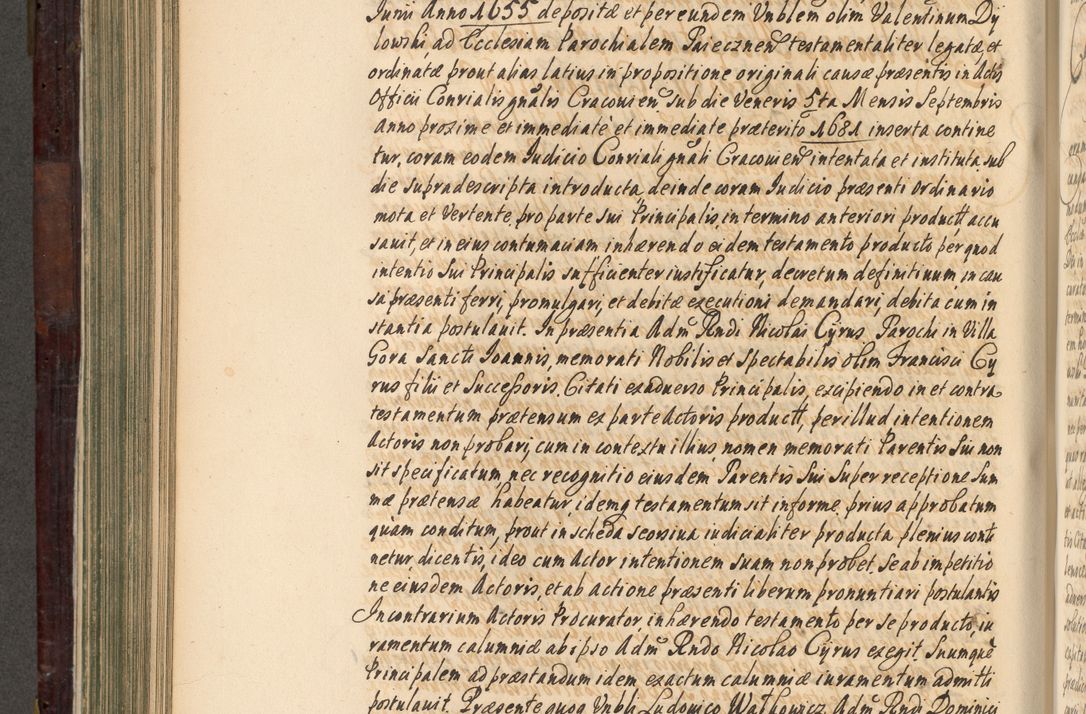 Junii Anno 1655 depositæ et per eundem Vnblem olim Valentinum Dy
lowski ad Ecclesiam Parochialem Paiecznen testamentaliter legatæ, et
ordinatæ prout alias latius in propositione originali causæ præsentis in Actis
Officii Conrialis gnalis Cracouien sub die Veneris 5ta Mensis Septembris
Anno proxime et immediatè et immediate præterito 1681 inserta contine
tur, coram eodem Iudicio Conriali gnali Cracouien intentata et instituta sub
die supradescripta introducta, deinde coram Iudicio præsenti Ordinario
mota et Vertente, pro parte sui Principalis, in termino anteriori product accu
sauit, et in eius contumaciam inhærendo eidem testamento producto per quod
intentio Sui Principalis sufficienter iustificatur, decretum definitiuum in cau
sa præsenti ferri, promulgari, et debitæ executioni demandari, debita cum in
stantia postulauit. In præsentia Adm Rndi Nicolai Cyrus Parochi in Villa
Gora Sancti Ioannis, memorati Nobilis et Spectabilis olim Francisci Cy
rus filii et Successoris. Citati exaduerso Principalis, excipiendo in et contra
testamentum prætensum ex parte Actoris product, per illud intentionem
Actoris non probari, cum in contextu illius nomen memorati Parentis Sui non
sit specificatum, nec recognitio eiusdem Parentis Sui Super receptione Sum
mæ prætensæ habeatur, idemq testamentum sit informe, prius approbatum
quam conditum, prout in scheda seorsiua iudicialiter producta plenius conti
netur, dicentis, ideo cum Actor intentionem suam non probet. Se ab impetitio
ne eiusdem Actoris, et ab actione præsenti liberum pronuntiari postulantis
In contrarium Actoris Procurator, inhærendo testamento per se producto, iu
ramentum calumniæ ab ipso Adm Rndo Nicolao Cyrus exegit. Suumque
Principalem ad præstandum idem exactum calumniæ iuramentum admitti
postulauit. Præsente quoq Vnbli Ludouico Watkowicz Adm Rndi Dominici